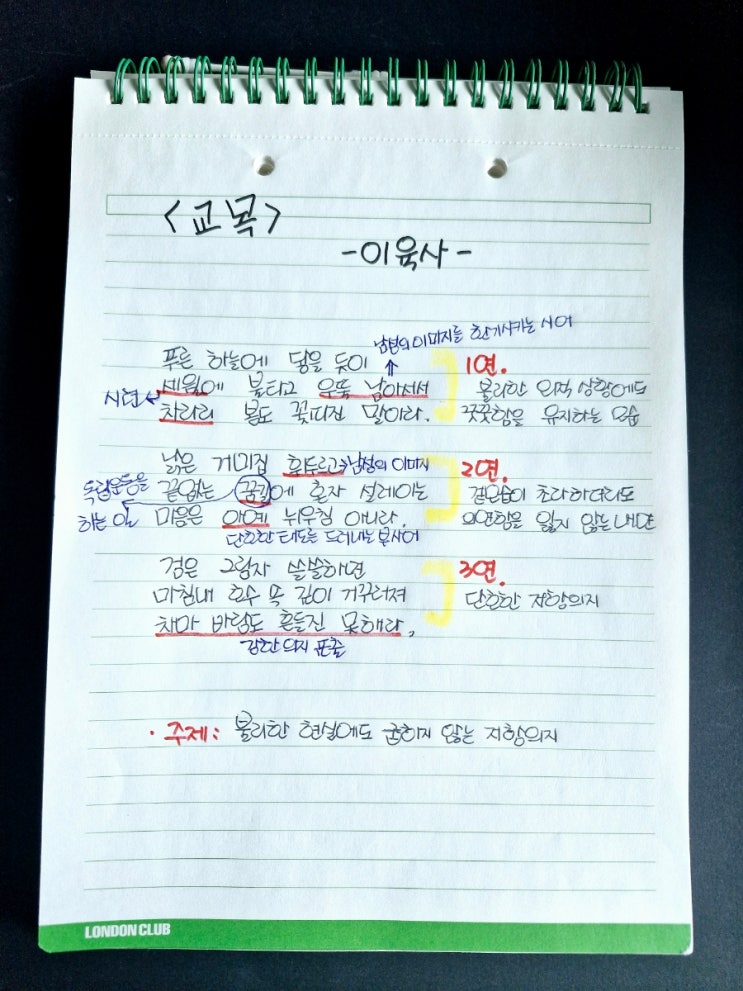 <교목>
-이육사-
남성의 이미지를 환기시키는 시어
푸른 하늘에 닿을 듯이
세월에 불타고 우뚝 남아서서
차라리 봄도 꽃피진 말아라.
시련
1연.
불리한 외적 상황에도
꿋꿋함을 유지하는 모습
낡은 거미집 휘두르고
남성의 이미지
끝없는 꿈길에 혼자 설레이는
마음은 아예 뉘우침 아니라.
독립운동을
하는 일
단호한 태도를 드러내는 부사어
2연.
겉모습이 초라하더라도
의연함을 잃지 않는 내면
검은 그림자 쓸쓸하면
마침내 호수 속 깊이 거꾸러져
차마 바람도 흔들진 못해라.
강한 의지 표출
3연.
단호한 저항의지
·주제: 불리한 현실에도 굴하지 않는 저항의지
LONDON CLUB